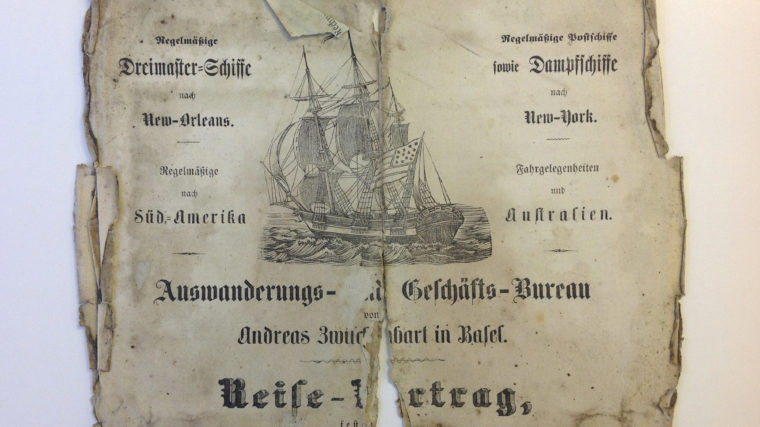 Regelmäßige
Dreimaster-Schiffe
nach
New-Orleans.
Regelmäßige
nach
Süd-Amerika
Regelmäßige Postschiffe
sowie Dampfschiffe
nach
New-York.
Fahrgelegenheiten
und
Australien.
Auswanderungs- und Geschäfts-Bureau
von
Andreas Zwilchenbart in Basel.
Reise-Vertrag,